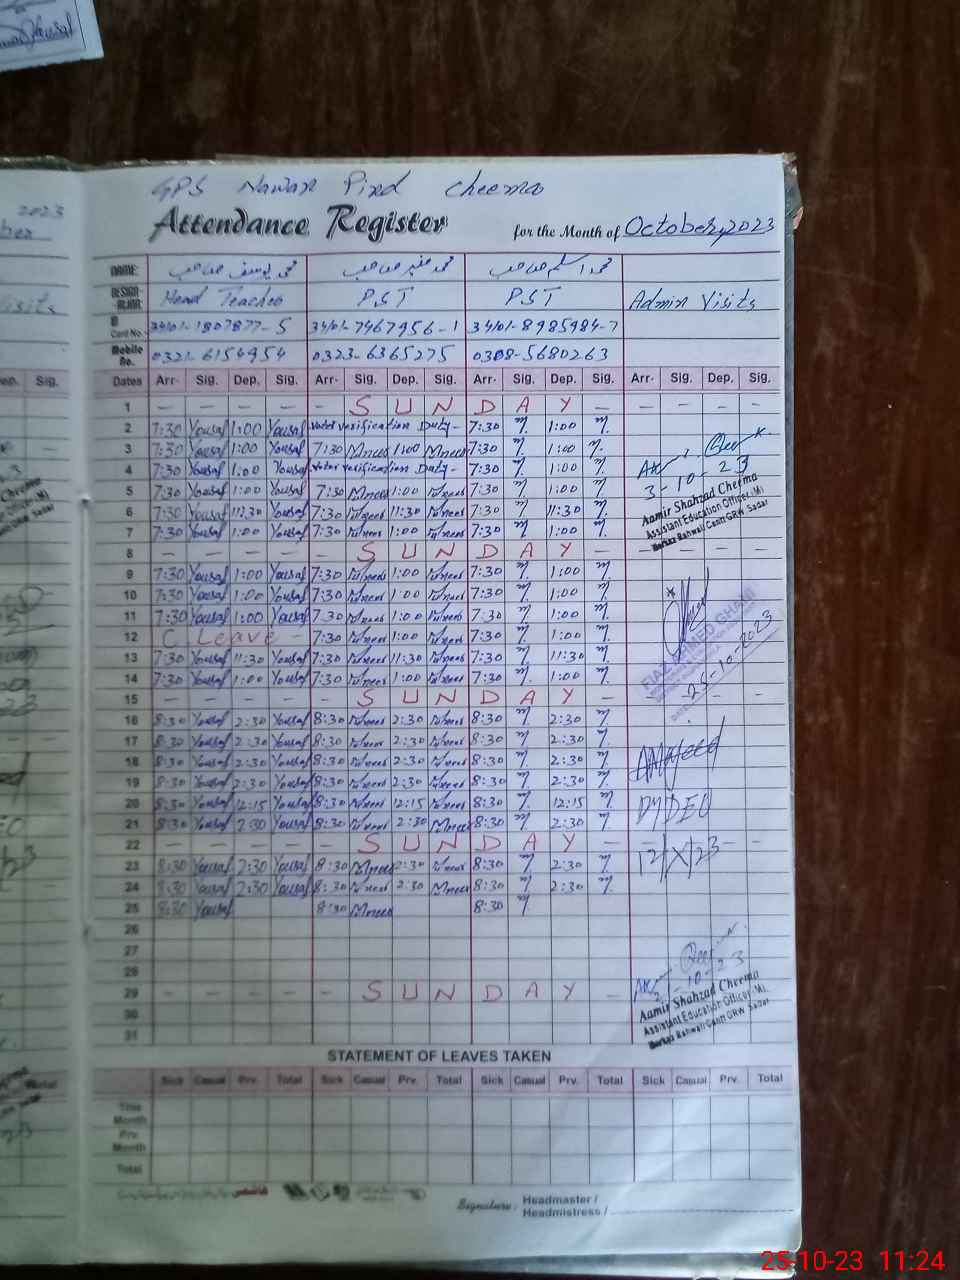 GPS Nawan Pind Cheema
Attendance Register for the Month of October, 2023
NAME: محمد یوسف صاحب محمد منیر صاحب محمد اسلم صاحب
DESIGN- Head Teacher PST PST Admin Visits
ID Card No. 34101-1807877-5 34101-7467956-1 34101-8985984-7
Mobile No. 0321-6154954 0323-6365275 0308-5680263
Dates Arr. Sig. Dep. Sig. Arr. Sig. Dep. Sig. Arr. Sig. Dep. Sig. Arr. Sig. Dep. Sig.
1 - - - - - S U N D A Y - - - - -
2 7:30 Yousaf 1:00 Yousaf Voter verification Duty - 7:30 1:00
3 7:30 Yousaf 1:00 Yousaf 7:30 Muneer 1:00 Muneer 7:30 1:00
4 7:30 Yousaf 1:00 Yousaf Voter verification Duty - 7:30 1:00
3-10-23
5 7:30 Yousaf 1:00 Yousaf 7:30 Muneer 1:00 Muneer 7:30 1:00
Aamir Shahzad Cheema
Assistant Education Officer (M)
Markaz Rahwali Cantt GRW Sadar
6 7:30 Yousaf 11:30 Yousaf 7:30 Muneer 11:30 Muneer 7:30 11:30
7 7:30 Yousaf 1:00 Yousaf 7:30 Muneer 1:00 Muneer 7:30 1:00
8 - - - - - S U N D A Y -
9 7:30 Yousaf 1:00 Yousaf 7:30 Muneer 1:00 Muneer 7:30 1:00
10 7:30 Yousaf 1:00 Yousaf 7:30 Muneer 1:00 Muneer 7:30 1:00
11 7:30 Yousaf 1:00 Yousaf 7:30 Muneer 1:00 Muneer 7:30 1:00
12 C. Leave - 7:30 Muneer 1:00 Muneer 7:30 1:00
FIAZ AHMED GHANI
13 7:30 Yousaf 11:30 Yousaf 7:30 Muneer 11:30 Muneer 7:30 11:30
14 7:30 Yousaf 1:00 Yousaf 7:30 Muneer 1:00 Muneer 7:30 1:00
25-10-2023
15 - - - - - S U N D A Y - -
16 8:30 Yousaf 2:30 Yousaf 8:30 Muneer 2:30 Muneer 8:30 2:30
17 8:30 Yousaf 2:30 Yousaf 8:30 Muneer 2:30 Muneer 8:30 2:30
18 8:30 Yousaf 2:30 Yousaf 8:30 Muneer 2:30 Muneer 8:30 2:30
19 8:30 Yousaf 2:30 Yousaf 8:30 Muneer 2:30 Muneer 8:30 2:30
20 8:30 Yousaf 12:15 Yousaf 8:30 Muneer 12:15 Muneer 8:30 12:15 DYDEO
21 8:30 Yousaf 2:30 Yousaf 8:30 Muneer 2:30 Muneer 8:30 2:30
22 - - - - - S U N D A Y - 12/X/23 -
23 8:30 Yousaf 2:30 Yousaf 8:30 Muneer 2:30 Muneer 8:30 2:30
24 8:30 Yousaf 2:30 Yousaf 8:30 Muneer 2:30 Muneer 8:30 2:30
25 8:30 Yousaf 8:30 Muneer 8:30
26
27
28
29 - - - - - S U N D A Y - 21-10-23
Aamir Shahzad Cheema
Assistant Education Officer (M)
Markaz Rahwali Cantt GRW Sadar
30
31
STATEMENT OF LEAVES TAKEN
Sick Casual Prv. Total Sick Casual Prv. Total Sick Casual Prv. Total Sick Casual Prv. Total
This Month
Prv. Month
Total
Signature: Headmaster / Headmistress /
25-10-23 11:24